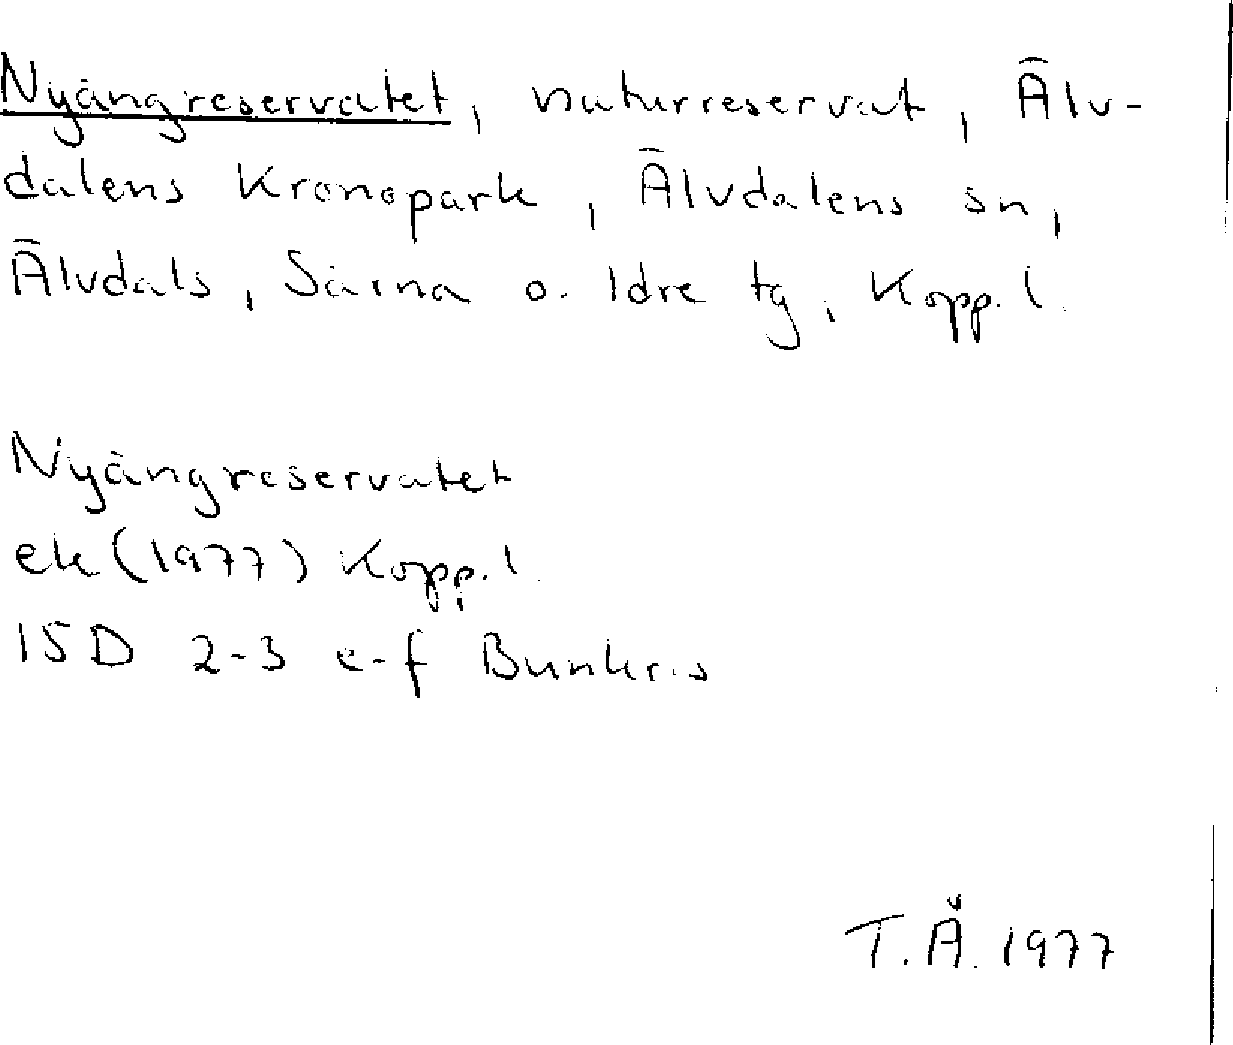 Nyängreservatet, naturreservat, Älv-
dalens Kronopark, Älvdalens sn,
Älvdals, Särna o. Idre tg, Kopp. l.
Nyängreservatet
ek (1977) Kopp. l.
15D 2-3 e-f Bunkris
T.Å. 1977